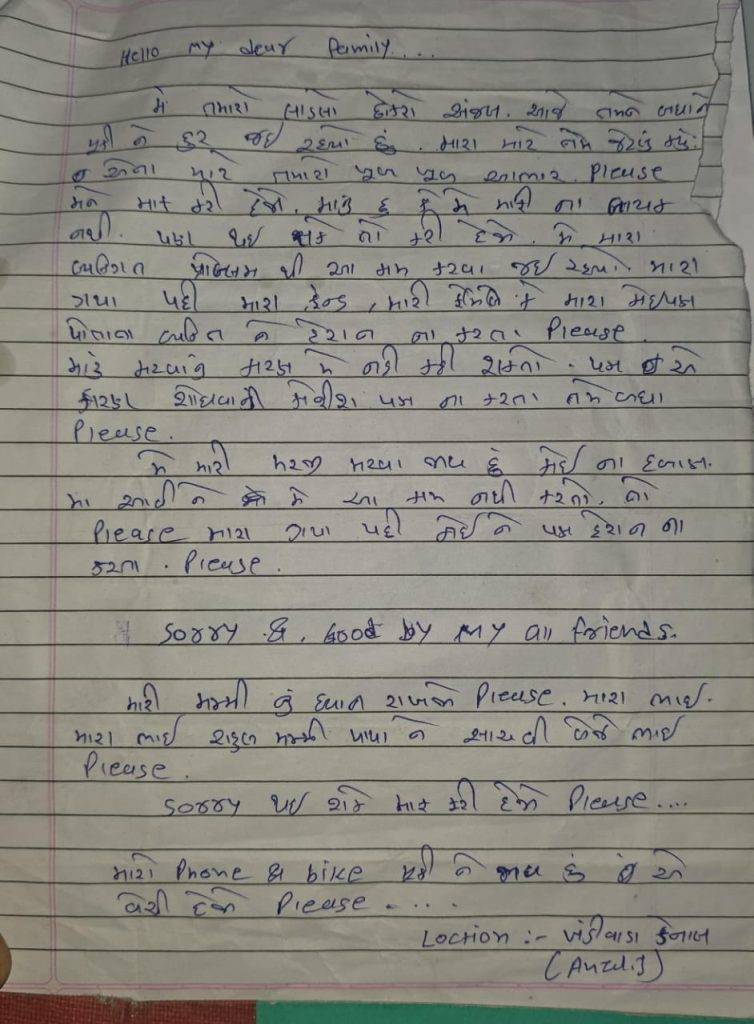 Hello my dear family...
મે તમારો લાડલો છોકરો સંજય. આજે તમને બધાને
મુકી ને દુર જઈ રહ્યો છું. મારા માટે તમે જેટલું કર્યું
એના માટે તમારો ખુબ ખુબ આભાર. Please
મને માફ કરી દેજો. માફ કે મે માફી ના લાયક
નથી. પણ થઇ શકે તો કરી દેજો. મે મારા
વ્યક્તિગત પ્રોબ્લેમ થી આ કામ કરવા જઈ રહ્યો. મારા
ગયા પછી મારા ફ્રેન્ડ, મારી ફેમિલી કે મારા કોઇપણ
પોતાના વ્યક્તિ ને હેરાન ના કરતા Please.
મારું મરવાનું કારણ મે નહી કહી શકતો. પણ એ
કારણ શોધવાની કોશીશ પણ ના કરતા તમે બધા
Please.
મે મારી મરજી મરવા જાવ છું કોઈ ના દબાણ
મા આવી ને મે આ કામ નથી કરતો. તો
Please મારા ગયા પછી કોઈ ને પણ હેરાન ના
કરતા. Please.
Sorry & Good by my all friends.
મારી મમ્મી નું ધ્યાન રાખજે Please. મારા ભાઇ.
મારા ભાઇ રાહુલ મમ્મી પાપા ને સાચવી લેજે ભાઇ
Please.
Sorry થઇ શકે માફ કરી દેજો Please....
મારો Phone & bike મુકી ને જાવ છું એ
વેચી દેજો Please.....
Loction :- ખંડીવાડા કેનાલ